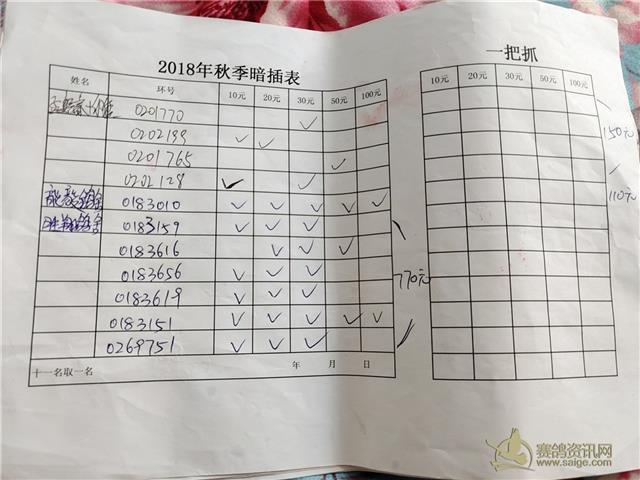 2018年秋季暗插表
姓名 环号 10元 20元 30元 50元 100元
0201770 ✓
0202199 ✓ ✓
0201765 ✓
0202128 ✓ ✓
0183010 ✓ ✓ ✓ ✓ ✓
0183159 ✓ ✓ ✓
0183616 ✓ ✓ ✓
0183656 ✓ ✓ ✓
0183619 ✓ ✓ ✓
0183151 ✓ ✓ ✓ ✓ ✓
0269751 ✓ ✓ ✓
770元
十一名取一名 年 月 日
一把抓
10元 20元 30元 50元 100元
150元
110元
赛鸽资讯网
www.saige.com